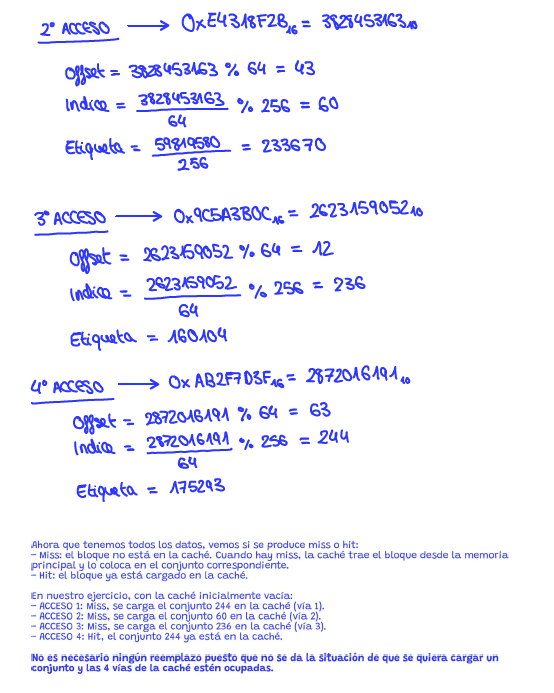 2º ACCESO → 0xE4318F2B₁₆ = 3828453163₁₀
Offset = 3828453163 % 64 = 43
Indice = 3828453163 / 64 % 256 = 60
Etiqueta = 59819580 / 256 = 233670
3º ACCESO → 0x9C5A3B0C₁₆ = 2623159052₁₀
Offset = 2623159052 % 64 = 12
Indice = 2623159052 / 64 % 256 = 236
Etiqueta = 160104
4º ACCESO → 0xAB2F7D3F₁₆ = 2872016191₁₀
Offset = 2872016191 % 64 = 63
Indice = 2872016191 / 64 % 256 = 244
Etiqueta = 175293
Ahora que tenemos todos los datos, vemos si se produce miss o hit:
- Miss: el bloque no está en la caché. Cuando hay miss, la caché trae el bloque desde la memoria
principal y lo coloca en el conjunto correspondiente.
- Hit: el bloque ya está cargado en la caché.
En nuestro ejercicio, con la caché inicialmente vacía:
- ACCESO 1: Miss, se carga el conjunto 244 en la caché (vía 1).
- ACCESO 2: Miss, se carga el conjunto 60 en la caché (vía 2).
- ACCESO 3: Miss, se carga el conjunto 236 en la caché (vía 3).
- ACCESO 4: Hit, el conjunto 244 ya está en la caché.
No es necesario ningún reemplazo puesto que no se da la situación de que se quiera cargar un
conjunto y las 4 vías de la caché estén ocupadas.